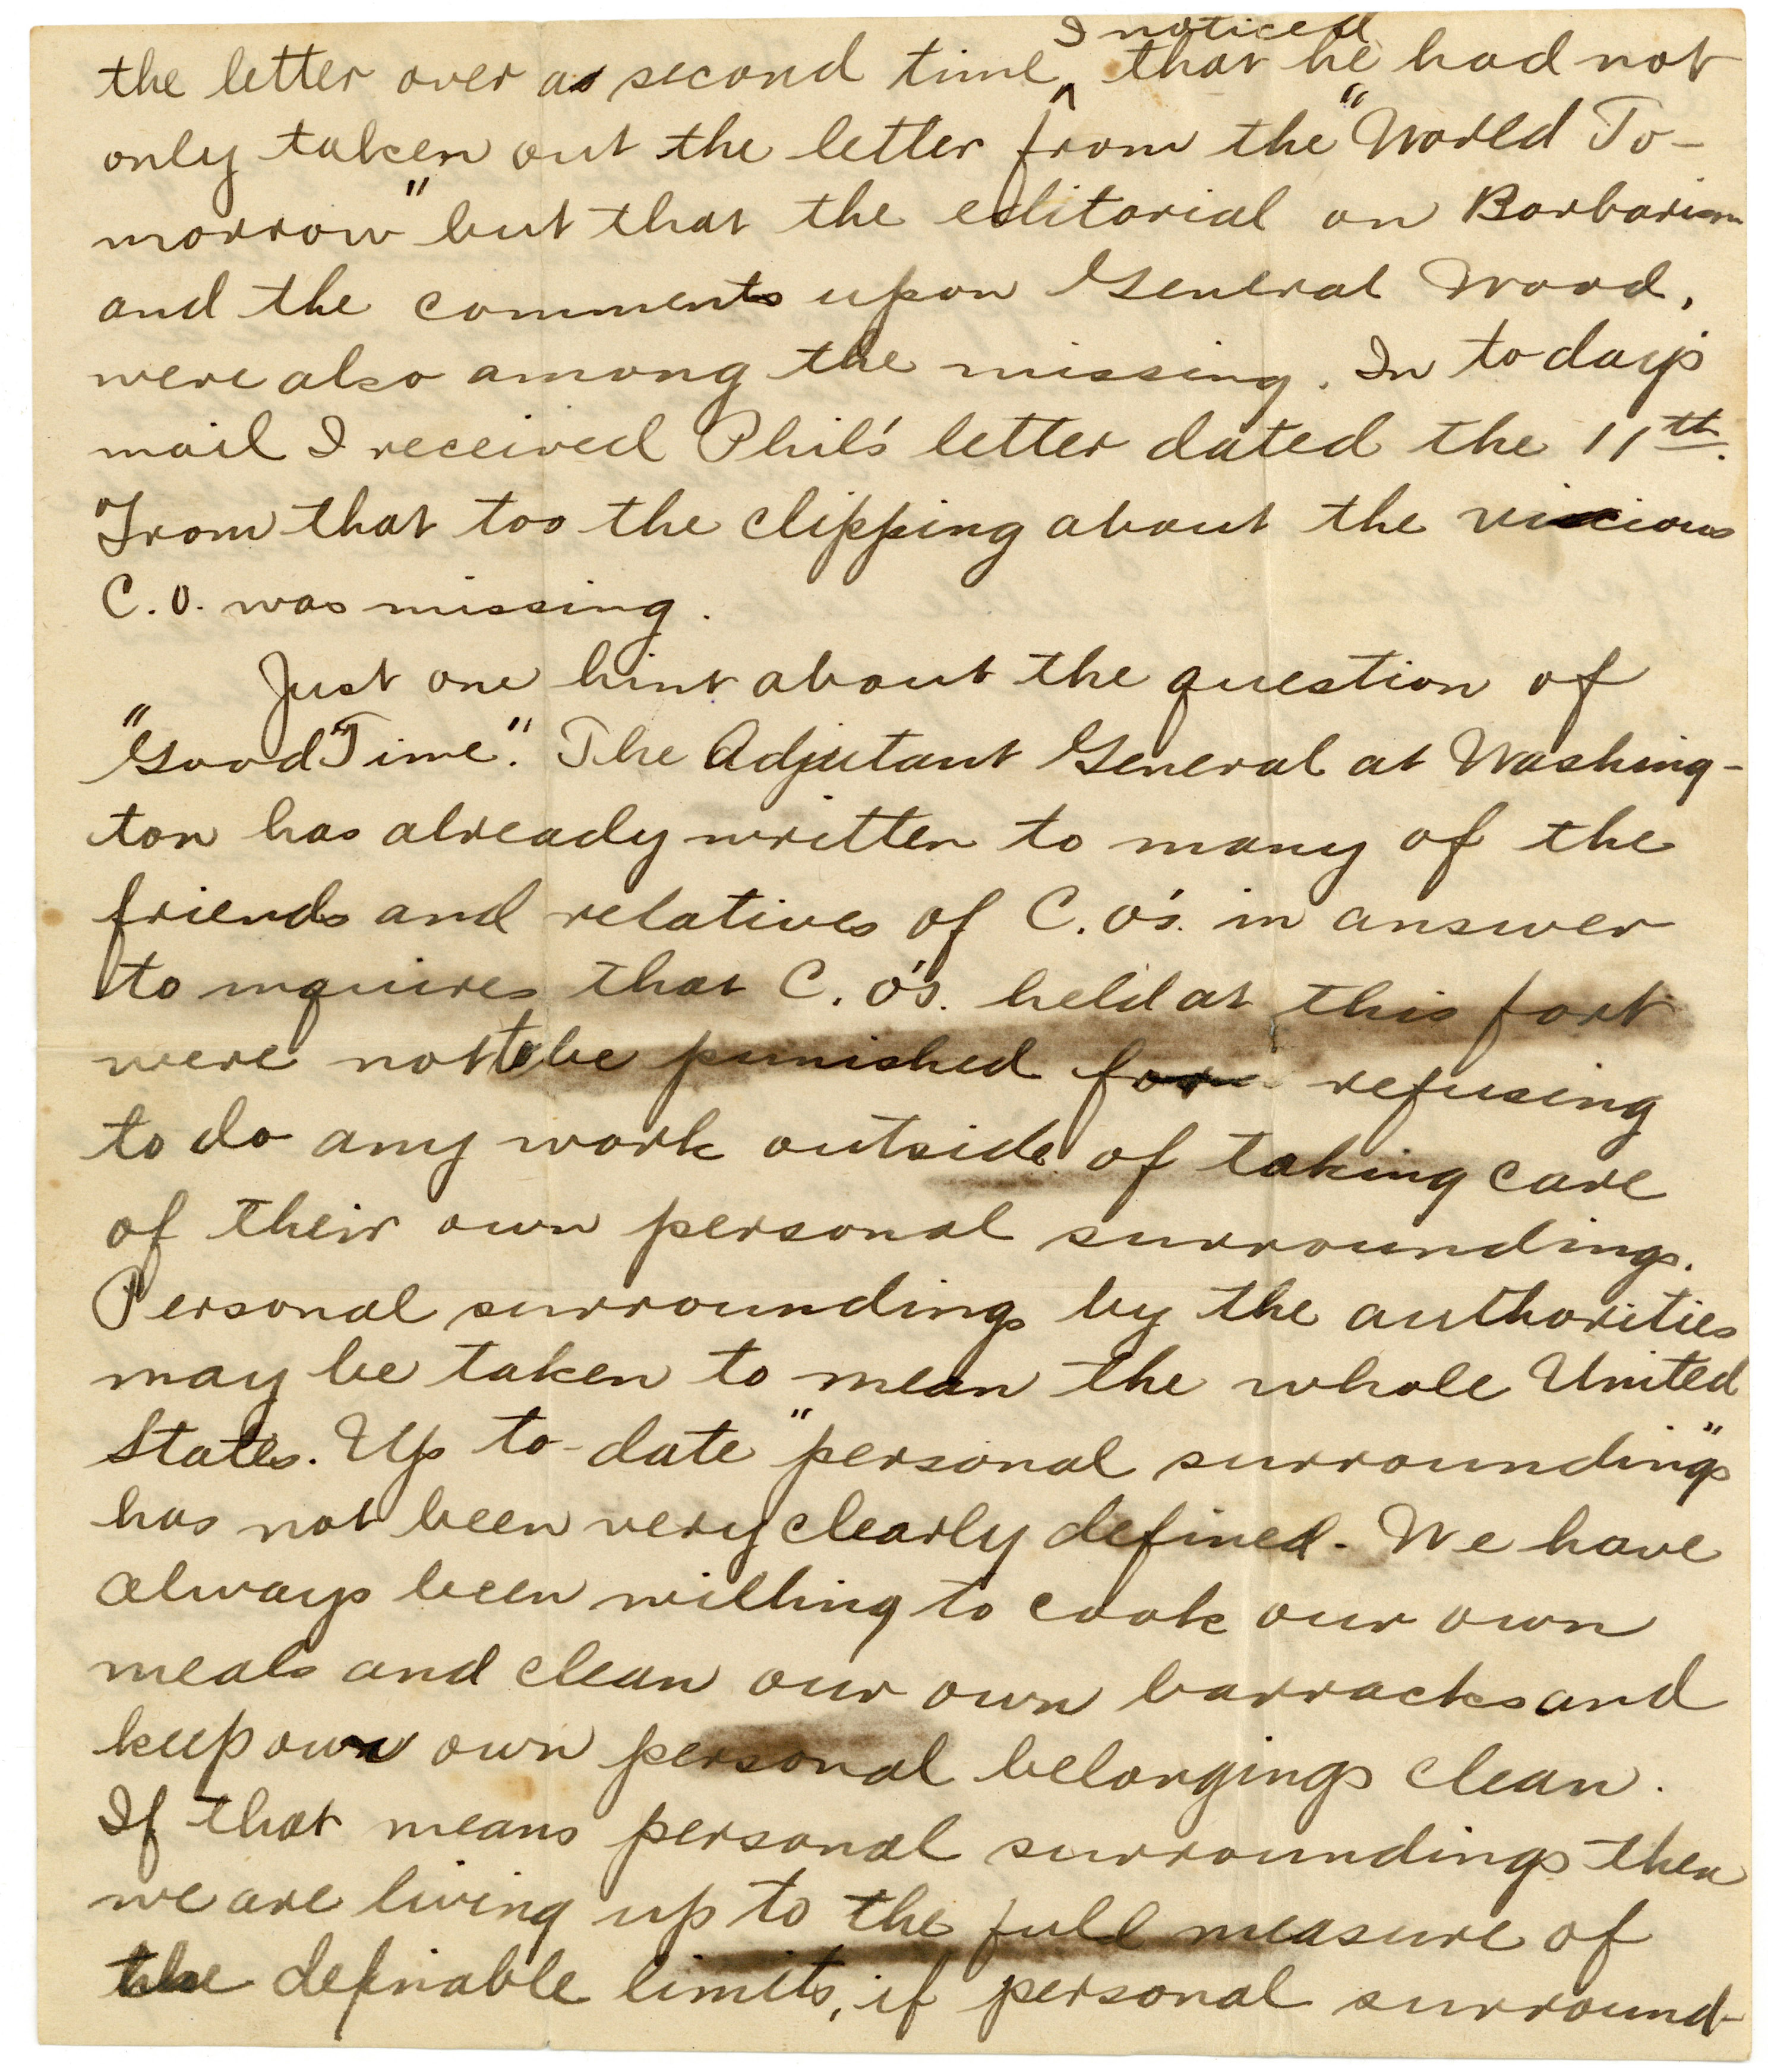 the letter over a second time I noticed that he had not
only taken out the letter from the "World To-
morrow" but that the editorial on Barbarism
and the comments upon General Wood,
were also among the missing. In to day's
mail I received Phil's letter dated the 11th.
From that too the clipping about the vicious
C.O. was missing.
Just one hint about the question of
"Good Time". The Adjutant General at Washing-
ton has already written to many of the
friends and relatives of C.O's. in answer
to inquires that C.O's. held at this fort
were not to be punished for refusing
to do any work outside of taking care
of their own personal surroundings.
Personal surroundings by the authorities
may be taken to mean the whole United
States. Up to-date "personal surroundings"
has not been very clearly defined. We have
always been willing to cook our own
meals and clean our own barracks and
keep our own personal belongings clean.
If that means personal surroundings then
we are living up to the full measure of
the definable limits, if personal surround-